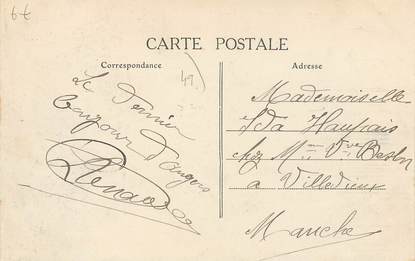 6€
CARTE POSTALE
Correspondance
Adresse
49.
Le Dernier
Bonjour d'Angers
Mademoiselle
Ida Haupais
chez Mme Vve Beslon
à Villedieu
Manche